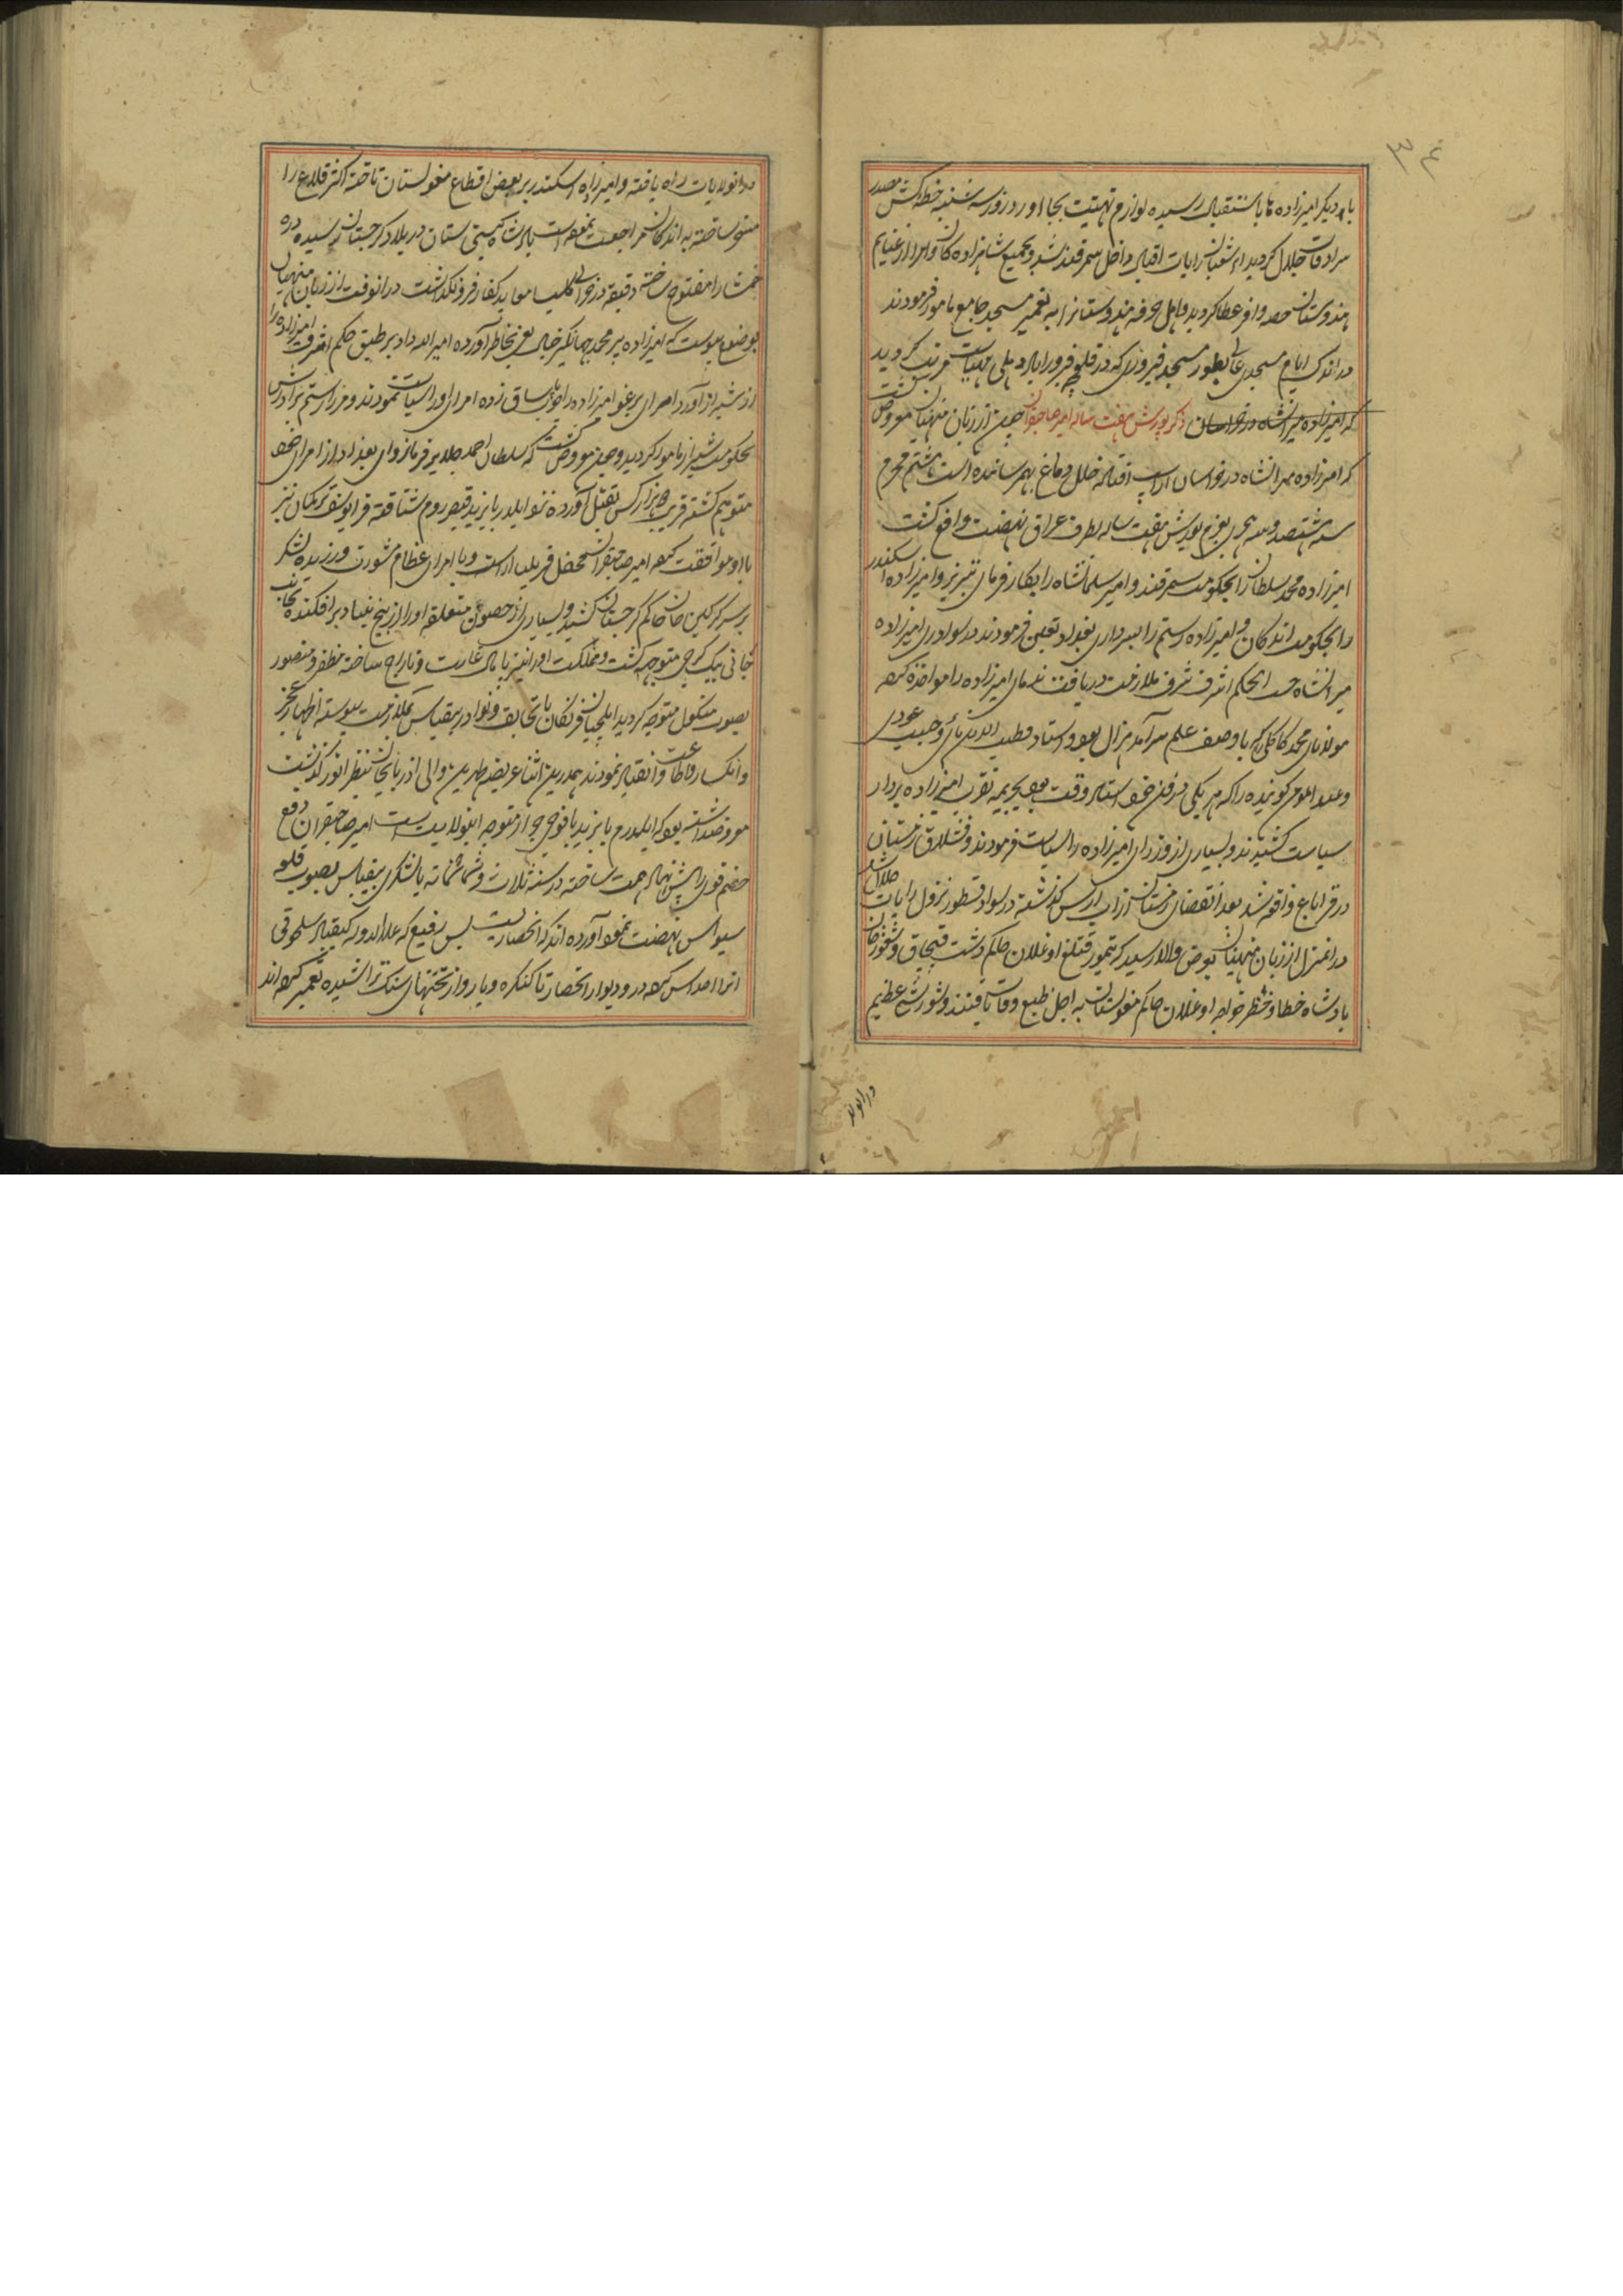 ۳۴
با دیگر امیرزاده ها باستقبال رسیده لوازم تهنیت بجا آورد و روز سه شنبه خطه کش مصدر
سرادقات جلال گردید شعبان رایات اقبال داخل سمرقند شد و بجمیع شاهزاده کان و امرا از غنایم
هندوستان حصه وافر عطا کردید و اهل حرفه هندوستانرا به تعمیر مسجد جامع مامور فرمودند
در اندک ایام مسجدی عالی بطور مسجد فیروزی که در قلعه فیروزاباد دهلی مرتب کردید
که امیرزاده میرانشاه در خراسان ذکر یورش هفت ساله امیر صاحبقران چنین از زبان منهیان معروض گشت
که امیرزاده میرانشاه در خراسان از اسپ افتاده خلل دماغ بهم رسانده است هشتم محرم
سنه هشتصد و دو هجری بعزم یورش هفت ساله بطرف عراق نهضت واقع گشت
امیرزاده محمد سلطان را بحکومت سمرقند و امیر سلیمانشاه را بکار فرمای تبریز و امیرزاده اسکندر
را بحکومت اندکان و امیرزاده رستم را بسرداری بغداد تعین فرمودند در سواد ری امیرزاده
میرانشاه حسب الحکم اشرف شرف ملازمت دریافت ندمای امیرزاده را مواخذه کرده
مولانای محمد کاخکی که با وصف علم سرآمد هزال بود و استاد قطب الدین نائی و حبیب عودی
و عبدالمومن گوینده را که هر یکی در فن خود استاد وقت بود بجریمه تقرب امیرزاده بردار
سیاست کشیدند و بسیاری از وزرای امیرزاده را سیاست فرمودند و قشلاق زمستان
در قراباغ واقع شد بعد انقضای زمستان از آب ارس گذشته در سواد قسطور نزول رایات جلال شد
در انمنزل از زبان منهیان بعرض والا رسید که تیمور قتلغ اوغلان حاکم دشت قبچاق و تنغوز خان
پادشاه خطا و خضر خواجه اوغلان حاکم مغولستان به اجل طبع وفات یافتند و شورش عظیم
در انولا
در انولایات راه یافته و امیرزاده اسکندر بر بعض اقطاع مغولستان تاخته اکثر قلاع را
مسخر ساخته به اندکان مراجعت نموده است پادشاه گیتی ستان در بلاد گرجستان رسیده دره
خمشا را مفتوح ساخته دقیقه در خرابی کلیسا و معابد کفار فرونگذاشت در انوقت از زبان منهیان
بوضوح پیوست که امیرزاده پیر محمد جهانگیر خیال بغی بخاطر آورده امیر الله داد بر طبق حکم اشرف امیرزاده را
از شیراز آورد امرای یرغو امیرزاده را چوب یاساق زده امرای او را سیاست نمودند و میرزا رستم برادرش
بحکومت شیراز مامور کردید و هم معروض گشت که سلطان احمد جلایر فرمانروای بغداد از امرای خود
متوهم گشته قریب دو هزار کس بقتل آورده نزد ایلدرم بایزید قیصر روم شتافته قرا یوسف ترکمان نیز
با او موافقت کرده امیر صاحبقران محفل قریلتای آراست و با امرای عظام مشورت ورزیده لشکر
بر سر گرگین خان حاکم گرجستان کشید و بسیاری از حصون متعلقه او را از بیخ و بنیاد برافکنده بجانب
جانی بیک گرجی متوجه گشت و مملکت او را نیز پامال غارت و تاراج ساخته مظفر و منصور
بصوب منکول متوجه کردید ایلچیان فرنکان با تحایف و نوادر بیقیاس بملازمت پیوسته اظهار عجز
و انکسار و اطاعت و انقیاد نمودند همدرین اثنا عریضه طهرتن والی اذربایجان بنظر انور گذشت
معروضداشته بود که ایلدرم بایزید با فوجی جرار متوجه اینولایت است امیر صاحبقران دفع
خصم قوی را پیش نهاد همت ساخته در سنه ثلاث و ثمانمائه با لشکری بیقیاس بصوب قلعه
سیواس نهضت نمود آورده اند که انحصاریست بس رفیع که علاءالدوله کیقباد سلجوقی
انرا احداث کرده در و دیوار انحصار تا کنکره و بارو از تختهای سنک تراشیده تعمیر کرده اند